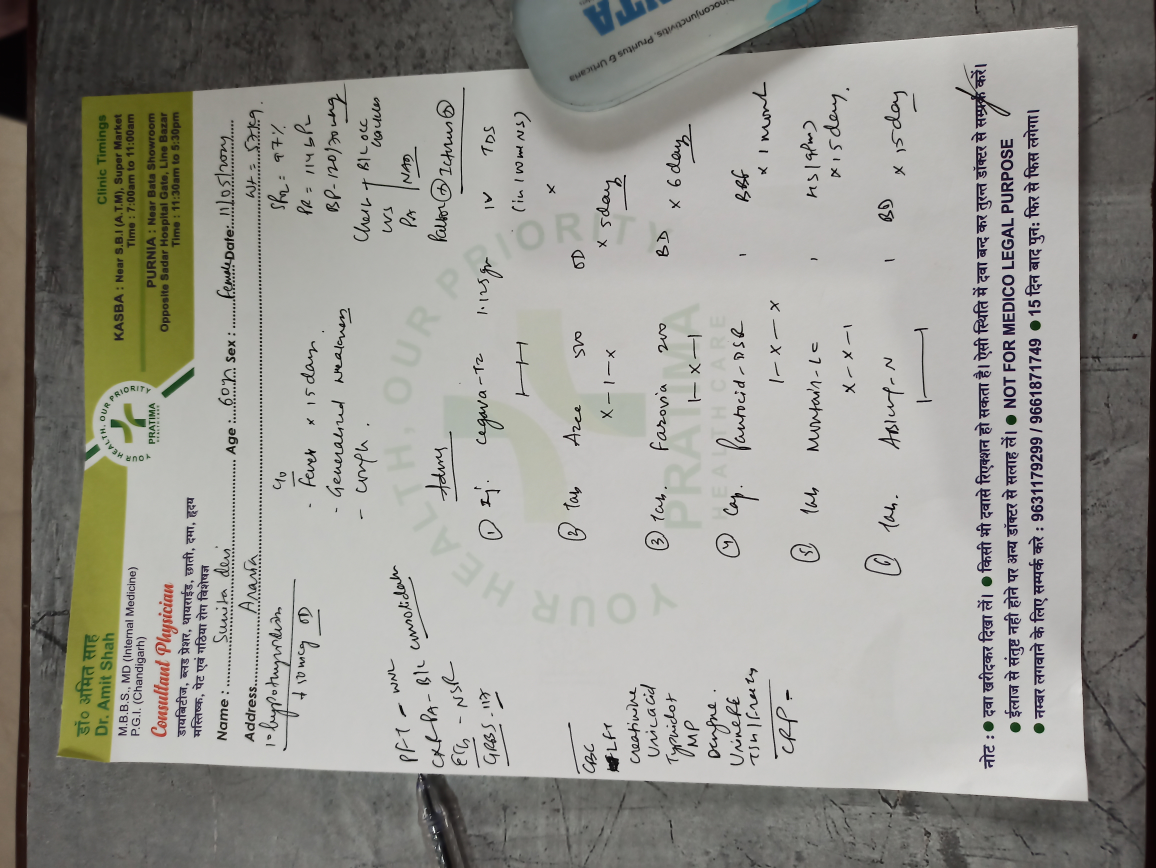 डॉ० अमित साह
Dr. Amit Shah
M.B.B.S., MD (Internal Medicine)
P.G.I. (Chandigarh)
Consultant Physician
डायबिटीज, ब्लड प्रेशर, थायराईड, छाती, दमा, हृदय
मस्तिष्क, पेट एवं गठिया रोग विशेषज्ञ
YOUR HEALTH, OUR PRIORITY
PRATIMA
HEALTHCARE
Clinic Timings
KASBA : Near S.B.I (A.T.M), Super Market
Time : 7:00am to 11:00am
PURNIA : Near Bata Showroom
Opposite Sadar Hospital Gate, Line Bazar
Time : 11:30am to 5:30pm
Name : Sunita devi Age : 60 Sex : Female Date: 11/05/
Address Araria Wt = 57kg.
hypothyroidism
50 mcg OD
C/o
- Fever x 15 days.
- Generalised weakness
- Cough.
SPO2 = 97%
PR = 114
BP - 120/70 mmHg
Chest + B/L occ
crackles
P/A NAD
PFT - WNL
CXR PA - B/L consolidation
ECG - NSR
GRBS - 117
CBC
LFT
Creatinine
Uric acid
Typhidot
MP
Dengue
Urine RE
CRP -
Advice
① Inj. 1.125 gr IV TDS
(in 100 ml NS)
② Tab Azee 500 OD
x - 1 - x x 5 days
③ Tab. Farovia 200 BD x 6 days
1 - x - 1
④ Cap. Pantocid - DSR 1 BBF
1 - x - x x 1 month
⑤ Tab Montair - LC 1 HS
x - x - 1 x 15 days.
⑥ Tab. - N 1 BD x 15 days
YOUR HEALTH, OUR PRIORITY
PRATIMA
HEALTH CARE
नोट : ● दवा खरीदकर दिखा लें। ● किसी भी दवासे रिएक्शन हो सकता है। ऐसी स्थिति में दवा बन्द कर तुरन्त डॉक्टर से सम्पर्क करें।
● ईलाज से संतुष्ट नहीं होने पर अन्य डॉक्टर से सलाह लें। ● NOT FOR MEDICO LEGAL PURPOSE
● नम्बर लगवाने के लिए सम्पर्क करे : 9631179299 / 9661871749 ● 15 दिन बाद पुन: फिर से फिस लगेगा।
Pruritus & Urticaria